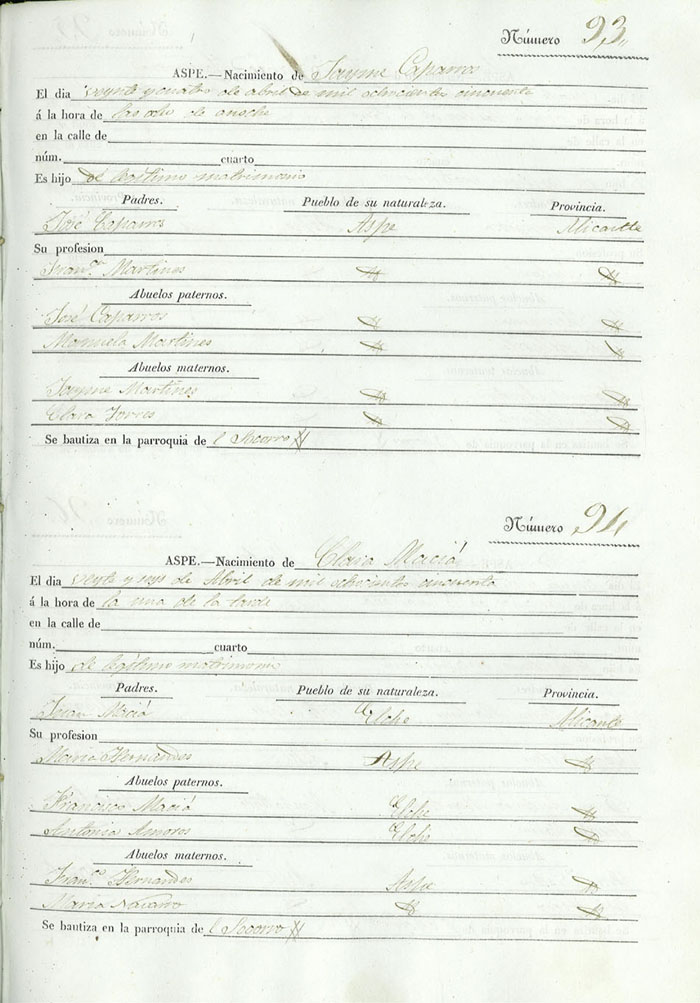 Número 93,,
ASPE.—Nacimiento de Jayme Caparros
El dia veynte y cuatro de abril de mil ochocientos cincuenta
á la hora de las ocho de anoche
en la calle de
núm. cuarto
Es hijo de legitimo matrimonio
Padres. Pueblo de su naturaleza. Provincia.
José Caparros Aspe Alicante
Su profesion
Franca. Martines
Abuelos paternos.
José Caparros
Manuela Martines
Abuelos maternos.
Jayme Martines
Clara Torres
Se bautiza en la parroquia de l Socorro
Número 94
ASPE.—Nacimiento de Clara Maciá
El dia veynte y seys de Abril de mil ochocientos cincuenta
á la hora de la una de la tarde
en la calle de
núm. cuarto
Es hijo de legitimo matrimonio
Padres. Pueblo de su naturaleza. Provincia.
Juan Maciá Elche Alicante
Su profesion
Maria Hernandes Aspe
Abuelos paternos.
Francisco Maciá Elche
Antonia Amoros Elche
Abuelos maternos.
Franco. Hernandes Aspe
Maria Navarro
Se bautiza en la parroquia de l Socorro